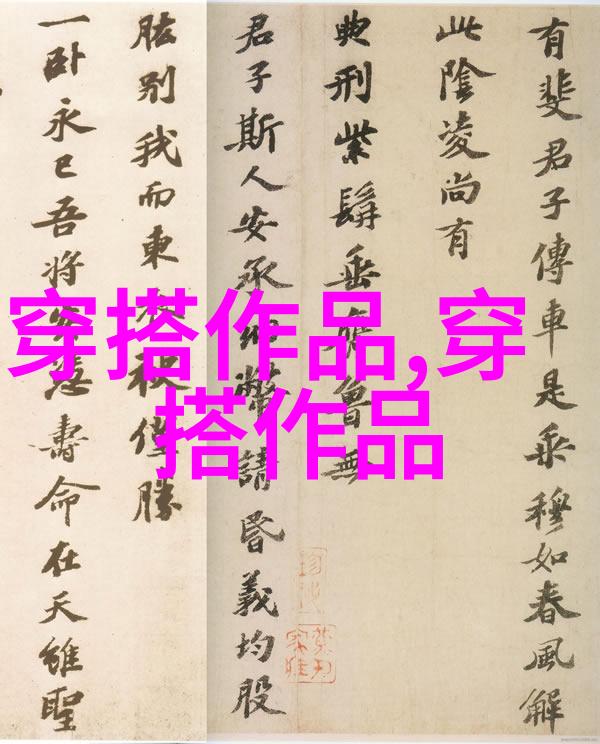 有斐君子傳車是乗穆如春風解
此陰凌尚有
典刑紫髯垂膺魯無
君子斯人安承納幣請昏義均股
肱别我而東衣袂僅勝
一卧永已吾將安憑壽命在天雖聖
穿搭作品,穿
搭作品